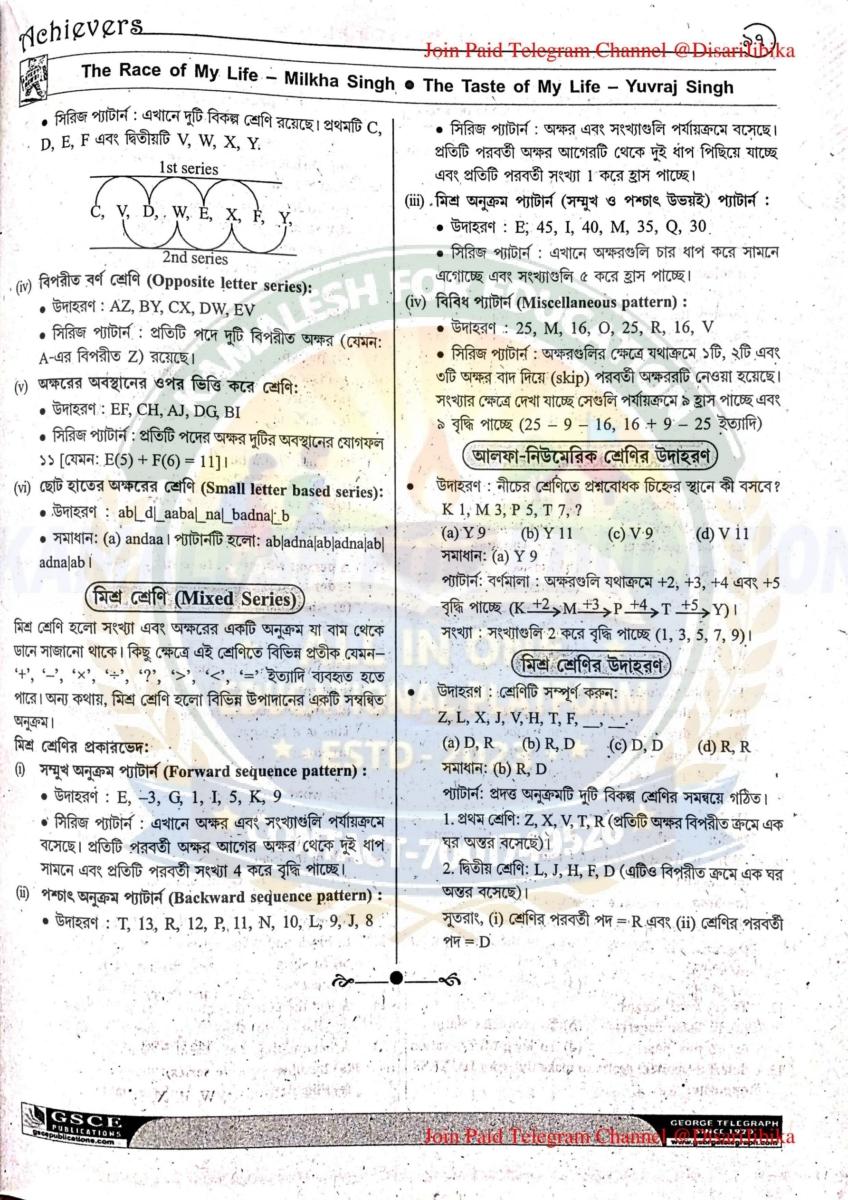 Achievers
Join Paid Telegram Channel @Disarilibika
২৭
The Race of My Life – Milkha Singh ● The Taste of My Life – Yuvraj Singh
• সিরিজ প্যাটার্ন : এখানে দুটি বিকল্প শ্রেণি রয়েছে। প্রথমটি C,
D, E, F এবং দ্বিতীয়টি V, W, X, Y.
1st series
C, V, D, W, E, X, F, Y,
2nd series
(iv) বিপরীত বর্ণ শ্রেণি (Opposite letter series):
• উদাহরণ : AZ, BY, CX, DW, EV
• সিরিজ প্যাটার্ন : প্রতিটি পদে দুটি বিপরীত অক্ষর (যেমন:
A-এর বিপরীত Z) রয়েছে।
(v) অক্ষরের অবস্থানের ওপর ভিত্তি করে শ্রেণি:
• উদাহরণ : EF, CH, AJ, DG, BI
• সিরিজ প্যাটার্ন : প্রতিটি পদের অক্ষর দুটির অবস্থানের যোগফল
১১ [যেমন: E(5) + F(6) = 11]।
(vi) ছোট হাতের অক্ষরের শ্রেণি (Small letter based series):
• উদাহরণ : ab|_d|_aaba|_na|_badna|_b
• সমাধান: (a) andaa। প্যাটার্নটি হলো: ab|adna|ab|adna|ab|
adna|ab।
মিশ্র শ্রেণি (Mixed Series)
মিশ্র শ্রেণি হলো সংখ্যা এবং অক্ষরের একটি অনুক্রম যা বাম থেকে
ডানে সাজানো থাকে। কিছু ক্ষেত্রে এই শ্রেণিতে বিভিন্ন প্রতীক যেমন–
‘+’, ‘–’, ‘×’, ‘÷’, ‘?’, ‘>’, ‘<’, ‘=’ ইত্যাদি ব্যবহৃত হতে
পারে। অন্য কথায়, মিশ্র শ্রেণি হলো বিভিন্ন উপাদানের একটি সমন্বিত
অনুক্রম।
মিশ্র শ্রেণির প্রকারভেদ:
(i) সম্মুখ অনুক্রম প্যাটার্ন (Forward sequence pattern) :
• উদাহরণ : E, –3, G, 1, I, 5, K, 9
• সিরিজ প্যাটার্ন : এখানে অক্ষর এবং সংখ্যাগুলি পর্যায়ক্রমে
বসেছে। প্রতিটি পরবর্তী অক্ষর আগের অক্ষর থেকে দুই ধাপ
সামনে এবং প্রতিটি পরবর্তী সংখ্যা 4 করে বৃদ্ধি পাচ্ছে।
(ii) পশ্চাৎ অনুক্রম প্যাটার্ন (Backward sequence pattern) :
• উদাহরণ : T, 13, R, 12, P, 11, N, 10, L, 9, J, 8
• সিরিজ প্যাটার্ন : অক্ষর এবং সংখ্যাগুলি পর্যায়ক্রমে বসেছে।
প্রতিটি পরবর্তী অক্ষর আগেরটি থেকে দুই ধাপ পিছিয়ে যাচ্ছে
এবং প্রতিটি পরবর্তী সংখ্যা 1 করে হ্রাস পাচ্ছে।
(iii) মিশ্র অনুক্রম প্যাটার্ন (সম্মুখ ও পশ্চাৎ উভয়ই) প্যাটার্ন :
• উদাহরণ : E, 45, I, 40, M, 35, Q, 30
• সিরিজ প্যাটার্ন : এখানে অক্ষরগুলি চার ধাপ করে সামনে
এগোচ্ছে এবং সংখ্যাগুলি ৫ করে হ্রাস পাচ্ছে।
(iv) বিবিধ প্যাটার্ন (Miscellaneous pattern) :
• উদাহরণ : 25, M, 16, O, 25, R, 16, V
• সিরিজ প্যাটার্ন : অক্ষরগুলির ক্ষেত্রে যথাক্রমে ১টি, ২টি এবং
৩টি অক্ষর বাদ দিয়ে (skip) পরবর্তী অক্ষররটি নেওয়া হয়েছে।
সংখ্যার ক্ষেত্রে দেখা যাচ্ছে সেগুলি পর্যায়ক্রমে ৯ হ্রাস পাচ্ছে এবং
৯ বৃদ্ধি পাচ্ছে (25 – 9 – 16, 16 + 9 – 25 ইত্যাদি)
আলফা-নিউমেরিক শ্রেণির উদাহরণ
• উদাহরণ : নীচের শ্রেণিতে প্রশ্নবোধক চিহ্নের স্থানে কী বসবে?
K 1, M 3, P 5, T 7, ?
(a) Y 9 (b) Y 11 (c) V 9 (d) V 11
সমাধান: (a) Y 9
প্যাটার্ন: বর্ণমালা : অক্ষরগুলি যথাক্রমে +2, +3, +4 এবং +5
বৃদ্ধি পাচ্ছে (K +2→ M +3→ P +4→ T +5→ Y)।
সংখ্যা : সংখ্যাগুলি 2 করে বৃদ্ধি পাচ্ছে (1, 3, 5, 7, 9)।
মিশ্র শ্রেণির উদাহরণ
• উদাহরণ : শ্রেণিটি সম্পূর্ণ করুন:
Z, L, X, J, V, H, T, F, __, __.
(a) D, R (b) R, D (c) D, D (d) R, R
সমাধান: (b) R, D
প্যাটার্ন: প্রদত্ত অনুক্রমটি দুটি বিকল্প শ্রেণির সমন্বয়ে গঠিত।
1. প্রথম শ্রেণি: Z, X, V, T, R (প্রতিটি অক্ষর বিপরীত ক্রমে এক
ঘর অন্তর বসেছে)।
2. দ্বিতীয় শ্রেণি: L, J, H, F, D (এটিও বিপরীত ক্রমে এক ঘর
অন্তর বসেছে)।
সুতরাং, (i) শ্রেণির পরবর্তী পদ = R এবং (ii) শ্রেণির পরবর্তী
পদ = D
KAMALESH FOR EDUCATION
ESTD - 2023
GSCE
PUBLICATIONS
gscepublications.com
GEORGE TELEGRAPH
SINCE 1920
www.georgetelegraph.com
Join Paid Telegram Channel @Disarilibika